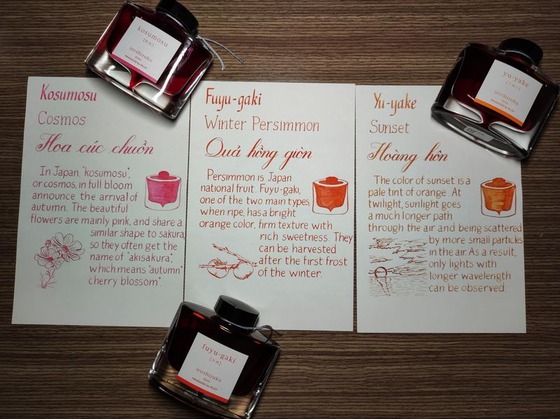 kosumosu
yu-yake
Kosumosu
Cosmos
Hoa cúc chuồn
In Japan, "kosumosu",
or cosmos, in full bloom
announce the arrival of
autumn. The beautiful
flowers are mainly pink, and share a
similar shape to sakura,
so they often get the
name of "akisakura",
which means "autumn
cherry blossom".
Fuyu-gaki
Winter Persimmon
Quả hồng giòn
Persimmon is Japan
national fruit. Fuyu-gaki,
one of the two main types
when ripe, has a bright
orange color, firm texture with
rich sweetness. They
can be harvested
after the first frost
of the winter.
Yu-yake
Sunset
Hoàng hôn
The color of sunset is a
pale tint of orange. At
twilight, sunlight goes
a much longer path
through the air and being scattered
by more small particles
in the air. As a result,
only lights with
longer wavelength
can be observed.
fuyu-gaki